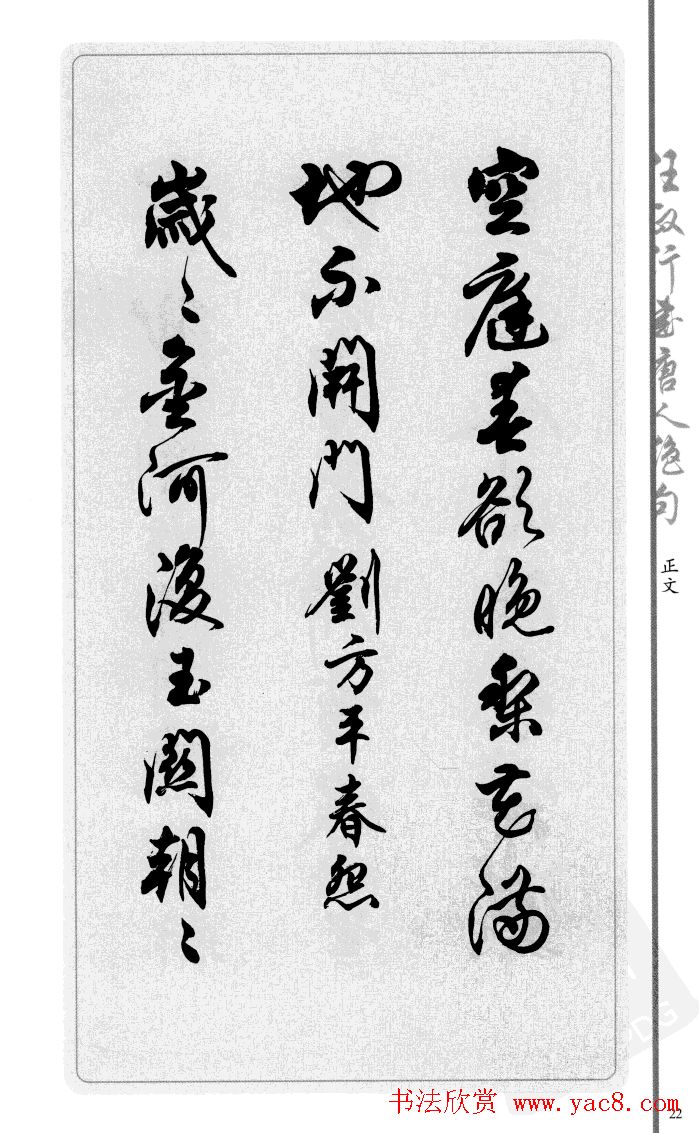 空庭春欲晚梨花滿
地不開門 劉方平春怨
歲〻金河復玉關朝〻
任政行書唐人绝句
正文
书法欣赏 www.yac8.com
22